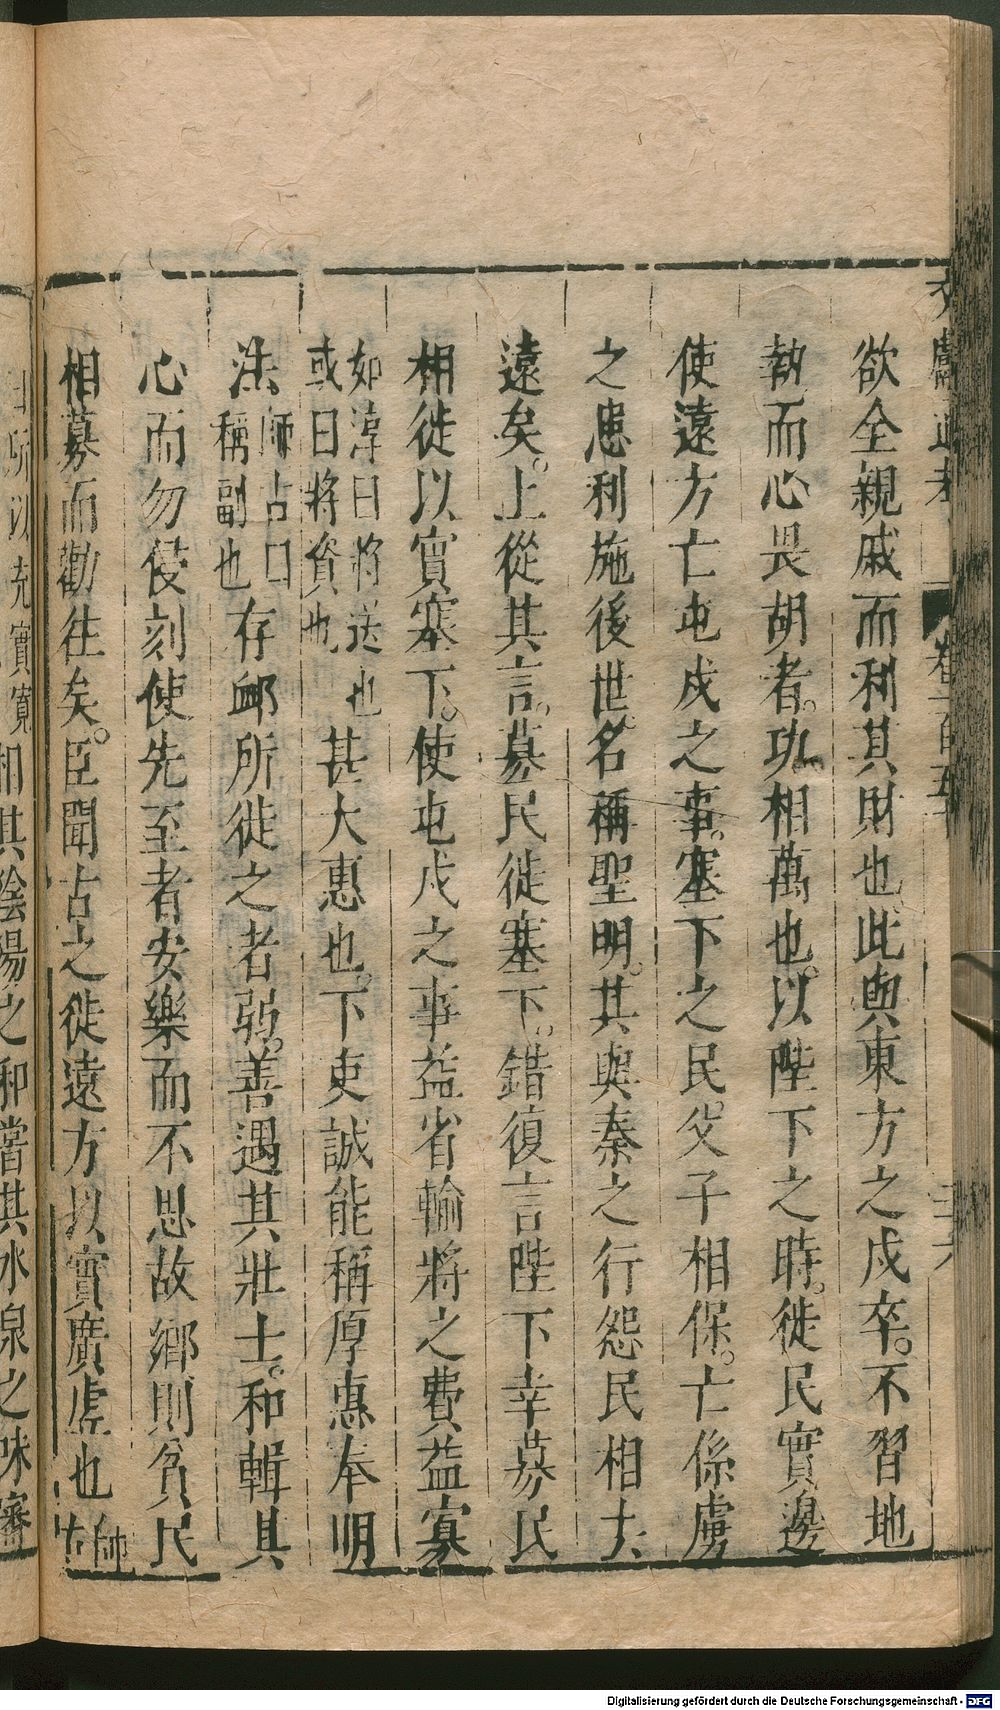 欲全親戚而利其財也此與東方之戍卒不習地
埶而心畏胡者功相萬也以陛下之時徙民實邊
使遠方亡屯戍之事塞下之民父子相保亡係虜
之患利施後世名稱聖明其與秦之行怨民相去
遠矣上從其言募民徙塞下錯復言陛下幸募民
相徙以實塞下使屯戍之事益省輸將之費益寡
如淳曰將送也
或曰將資也
甚大惠也下吏誠能稱厚惠奉明
法
師古曰
稱副也
存卹所徙之者弱善遇其壯士和輯其
心而勿侵刻使先至者安樂而不思故鄉則貧民
相募而勸往矣臣聞古之徙遠方以實廣虛也
師
古
所以充實寬
相其陰陽之和嘗其水泉之味審
Digitalisierung gefördert durch die Deutsche Forschungsgemeinschaft - DFG